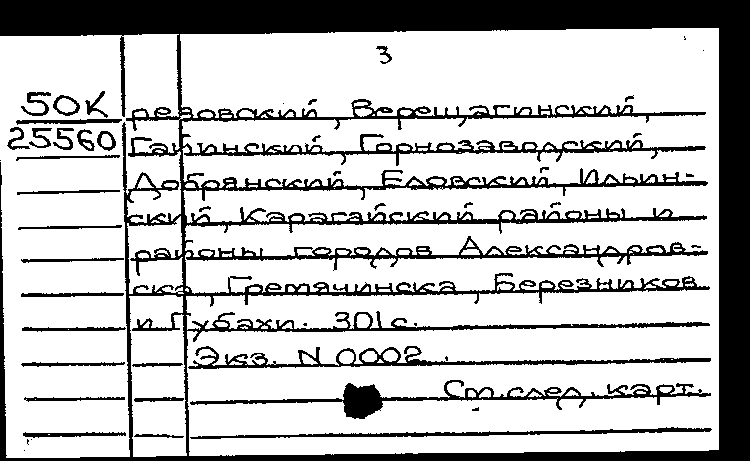 3
50К резовский, Верещагинский,
25560 Гайнский, Горнозаводский,
Добрянский, Еловский, Ильин-
ский, Карагайский районы и
районы городов Александров-
ска, Гремячинска, Березников
и Губахи. 301с.
Экз. N 0002.
См.след. карт.